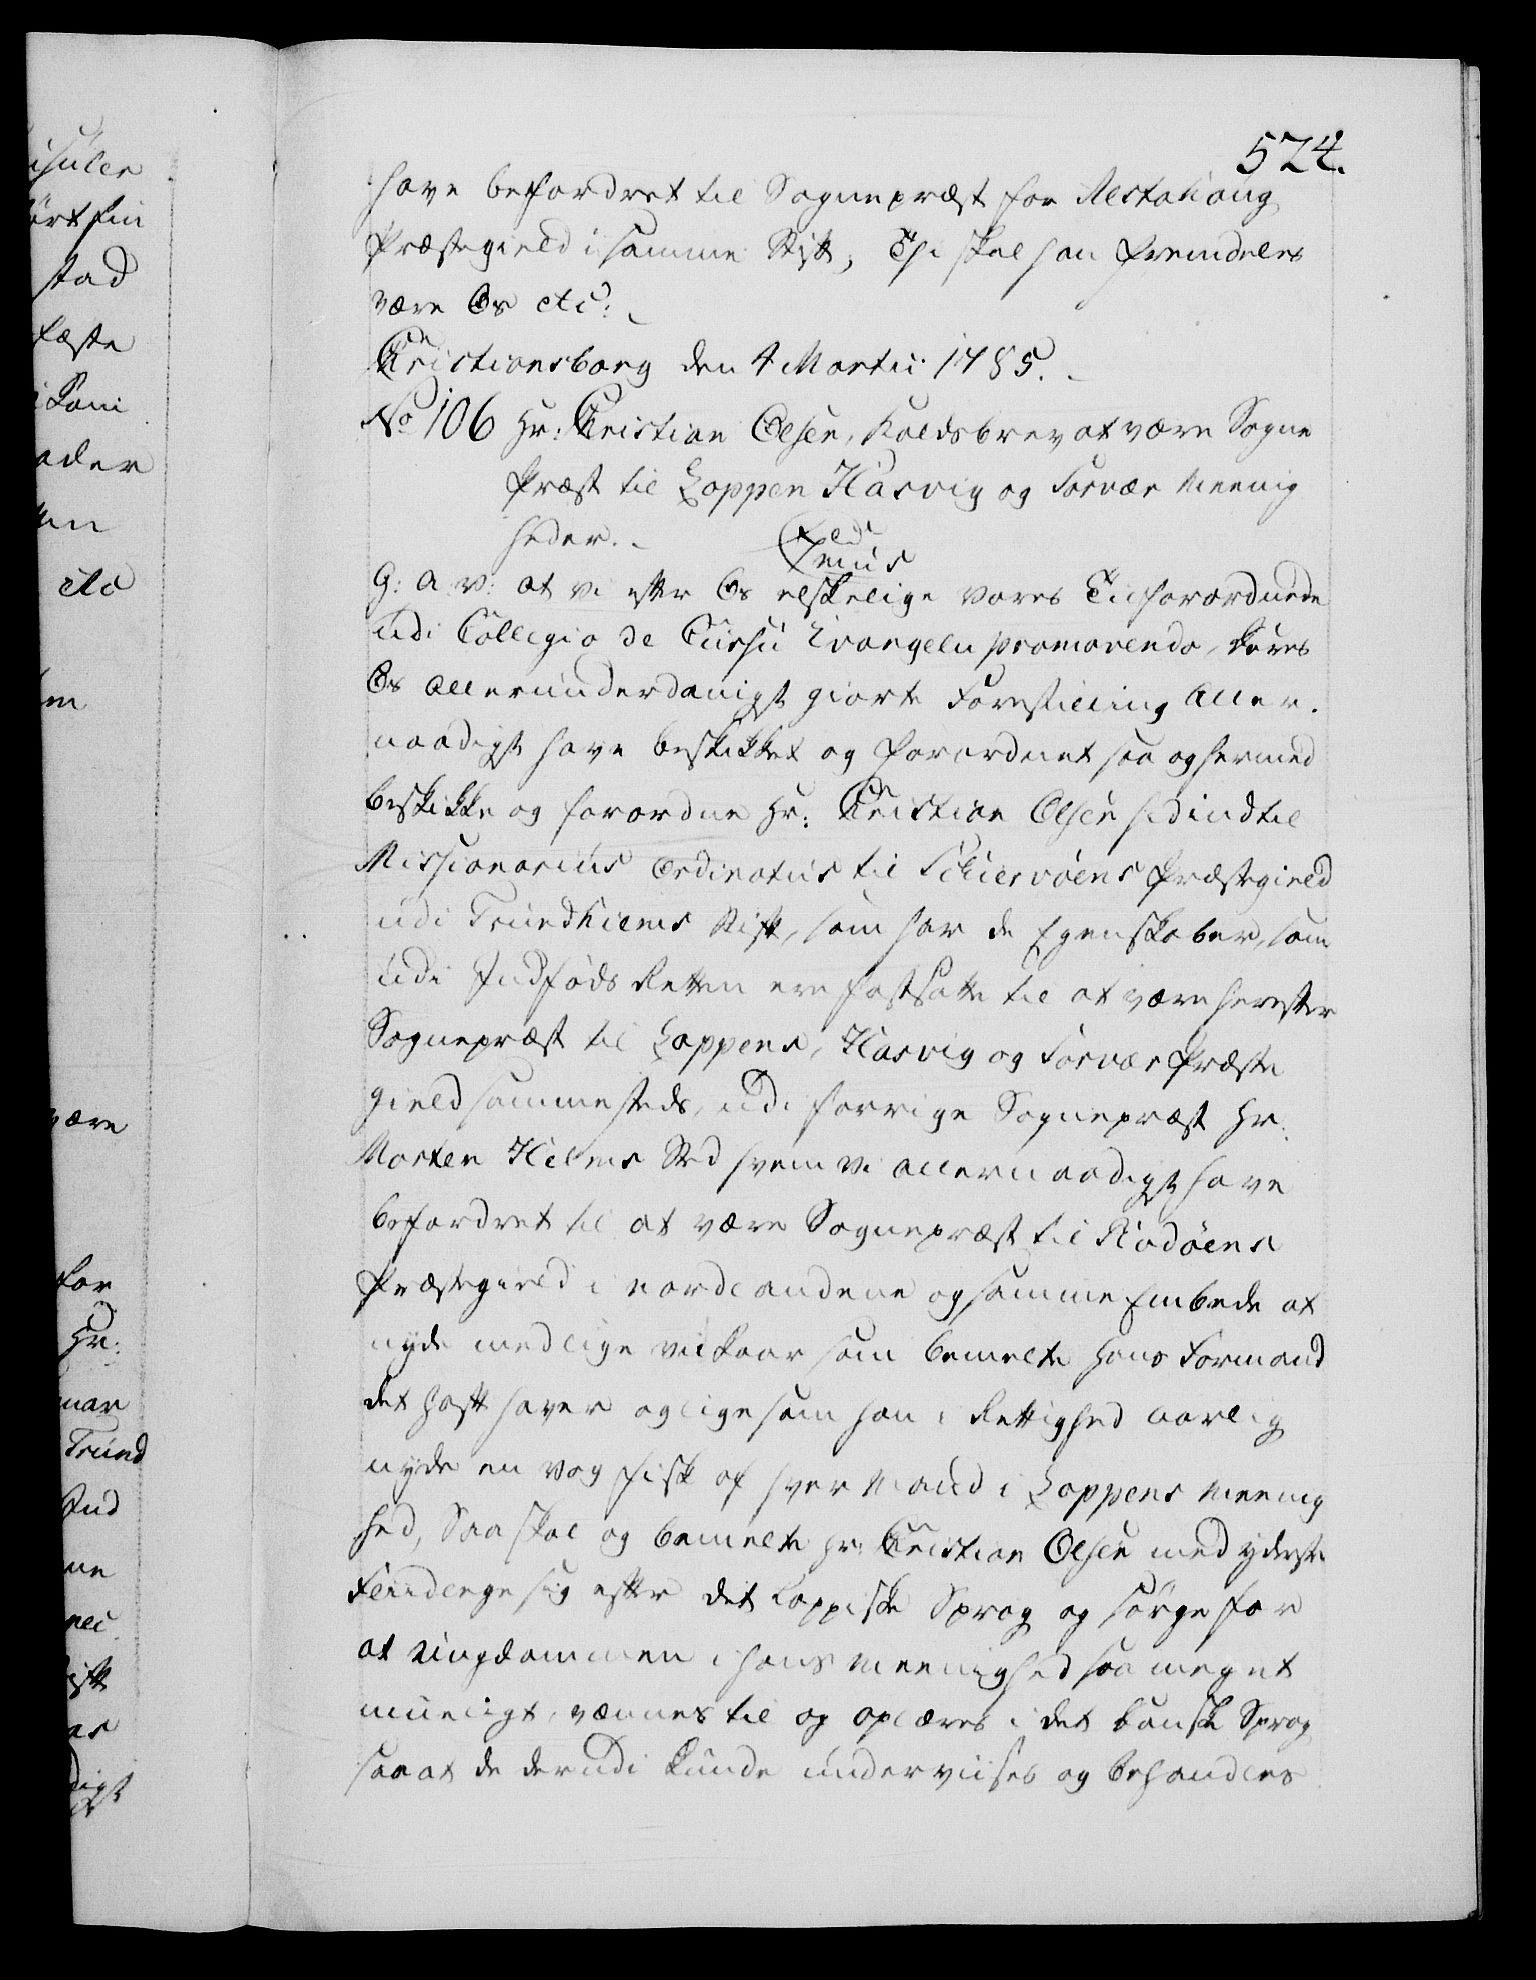 524.
have befordret til Sognepræst for Alstahoug
Præstegield i samme Stift, Thi skal han fremdeles
være Os etc:
Kristiansborg den 4 Martii 1785.
No 106 Hr: Kristian Olsen, Kaldsbrev at være Sogne
Præst til Loppen Hasvig og Sørvær Meenig
heder.
G: A. V: at vi efter Os elskelige vores Tilforordnede
udi Collegio de Cursu Evangelii promovendo, deres
Os allerunderdanigst giorte Forestilling Aller-
naadigst have beskikket og forordnet saa og hermed
beskikke og forordne Hr: Kristian Olsen hidindtil
Missionarius ordinatus til Schiervöens Præstegield
udi Trundhiems Stift, som har de Egenskaber, som
udi Indføds Retten ere fastsatte til at være herefter
Sognepræst til Loppens, Hasvig og Sørvær Præste
gield sammesteds, udi forrige Sognepræst Hr:
Morten Hilmers Sted hvem Vi allernaadigst have
befordret til at være Sognepræst til Rödöens
Præstegield i Nordlandene og samme Embede at
nyde med lige vilkaar som bemelte hans Formand
det haft haver og ligesom han i Rettighed aarlig
nyde en vog fisk af hver Mand i Loppens Meenig
hed, Saa skal og bemelte hr: Kristian Olsen med yderste
Flid lægge sig efter det Lappiske Sprog og sørge for
at Ungdommen i hans Meenighed saa meget
mueligt, vænnes til og oplæres i det danske Sprog
saa at de derudi kunde underviises og behandles
isuler
stad
fæste
ader
etc
være
for
Hr:
Trund
Ind
digst